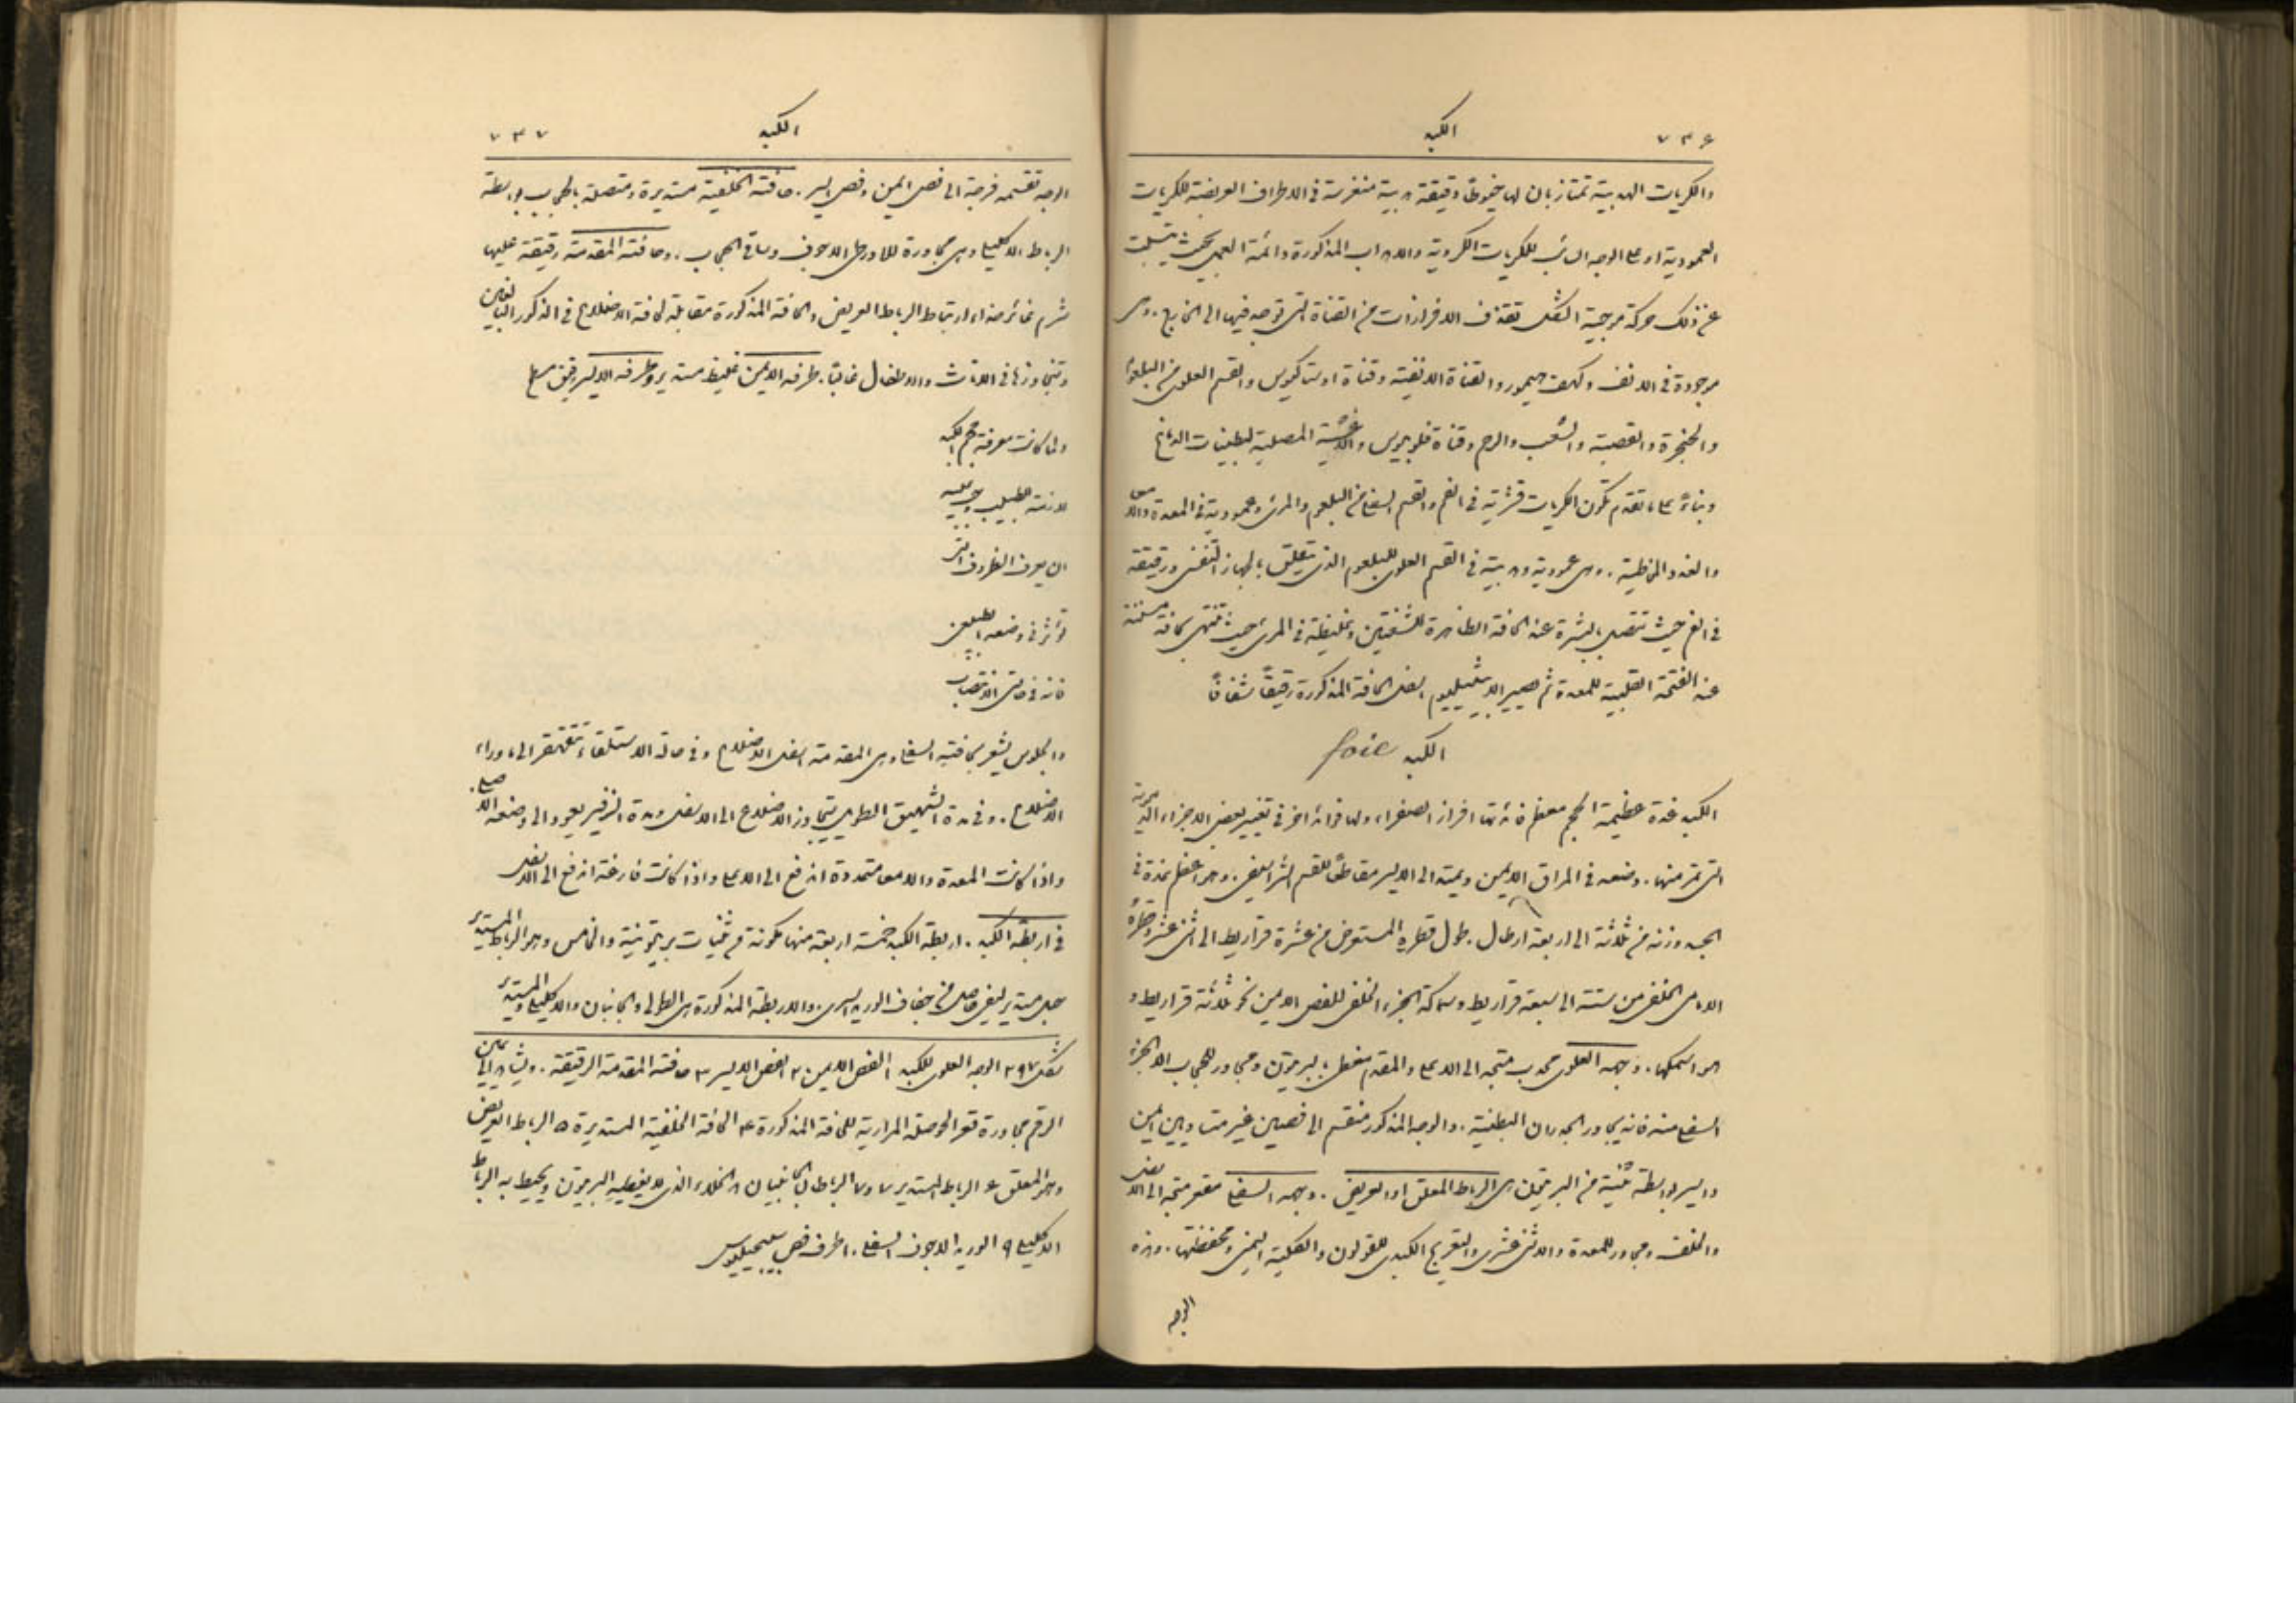 ٧٣٦
الكبد
والكريات الهدبية تمتاز بان لها خيوطًا دقيقة هدبية منغرسة في الاطراف العريضة للكريات
العمودية او على الوجه السائب للكريات الكروية والاهداب المذكورة دائمة العمل بحيث يتسبب
عن ذلك حركة موجية الشكل تقذف الافرازات من القناة التي توجد فيها الى الخارج. وهي
موجودة في الانف وكهف هيمور والقناة الانفية وقناة اوستاكيوس والقسم العلوي من البلعوم
والحنجرة والقصبة والشعب والرحم وقناة فلوبيوس والاغشية المصلية لبطينات الدماغ
وبناءً على ما تقدم تكون الكريات قشرية في الفم والقسم السفلي من البلعوم والمرئ وعمودية في المعدة والامعا
والغدد المخاطية. وهي عمودية وهدبية في القسم العلوي للبلعوم الذي يتعلق بالجهاز التنفسي ورقيقة
في الفم حيث تتصل بالبشرة عند الحافة الظاهرة للشفتين وغليظة في المرئ حيث تنتهي بحافة مسننة
عند الفتحة القلبية للمعدة ثم يصير الابيثيليوم اسفل الحافة المذكورة رقيقًا شفافًا
الكبد foie
الكبد غدة عظيمة الحجم معظم فائدتها افراز الصفراء ولها فوائد اخر في تغيير بعض الاجزاء الدموية
التي تمر منها. وضعه في المراق الايمن ويمتد الى الايسر مقاطعًا للقسم الشراسيفي. وهو اعظم غدة في
الجسد وزنه من ثلاثة الى اربعة ارطال. طول قطره المستعرض من عشرة قراريط الى اثني عشر وقطره
الامامي الخلفي من ستة الى سبعة قراريط وسماكة الجزء الخلفي للفص الايمن نحو ثلاثة قراريط و
هو اسمكها. وجهه العلوي محدب متجه الى الاعلى والمقدم مغطى بالبريتون ومجاور للحجاب الا الجزء
السفلي منه فانه يجاور الجدران البطنية. والوجه المذكور منقسم الى فصين غير متساويين ايمن
وايسر بواسطة ثنية من البريتون هي الرباط المعلق او العريض. وجهه السفلي مقعر متجه الى الاسفل
والخلف ومجاور للمعدة والاثني عشري والتعريج الكبدي للقولون والكلية اليمنى ومحفظتها. وهذه
الوجه
الكبد
٧٣٧
الوجه تقسمه فرجة الى فص ايمن وفص ايسر. حافته الخلفية مستديرة ومتصلة بالحجاب بواسطة
الرباط الاكليلي وهي مجاورة للاورطي والاجوف وساقي الحجاب. وحافته المقدمة رقيقة عليها
شرم غائر حذاء ارتباط الرباط العريض والحافة المذكورة مقابلة لحافة الاضلاع في الذكور البالغين
وتتجاوزها في الاناث والاطفال غالبًا. طرفه الايمن غليظ مستدير وطرفه الايسر رقيق مسطح
ولما كانت معرفة حجم الكبد
لازمة للطبيب يجب عليه
ان يعرف الظروف التي
تؤثر في وضعه الطبيعي
فانه في حالتي الانتصاب
والجلوس يشعر بحافته السفلى وهي المقدمة اسفل الاضلاع وفي حالة الاستلقاء يتقهقر الى ما وراء
الاضلاع. وفي مدة الشهيق الطويل يتجاوز الاضلاع الى الاسفل ومدة الزفير يعود الى وضعه الاصلي.
واذا كانت المعدة والامعا متمددة اندفع الى الاعلى واذا كانت فارغة اندفع الى الاسفل
في اربطة الكبد. اربطة الكبد خمسة اربعة منها مكونة من ثنيات بريتونية والخامس وهو الرباط المستدير
حبل مستدير ليفي حاصل من جفاف الوريد السري. والاربطة المذكورة هي الطولي والجانبيان والاكليلي والمستدير
شكل ٢٩٧ الوجه العلوي للكبد ١ الفص الايمن ٢ الفص الايسر ٣ حافته المقدمة الرقيقة. ويشاهد الى يمين
الرقم مجاورة قعر الحوصلة المرارية للحافة المذكورة ٤ الحافة الخلفية المستديرة ٥ الرباط العريض
وهو المعلق ٦ الرباط المستدير ٧ و٧ الرباطان الجانبيان ٨ الخلاء الذي لا يغطيه البريتون ويحيط به الرباط
الاكليلي ٩ الوريد الاجوف السفلي. ١٠ طرف فص سبيجيليوس